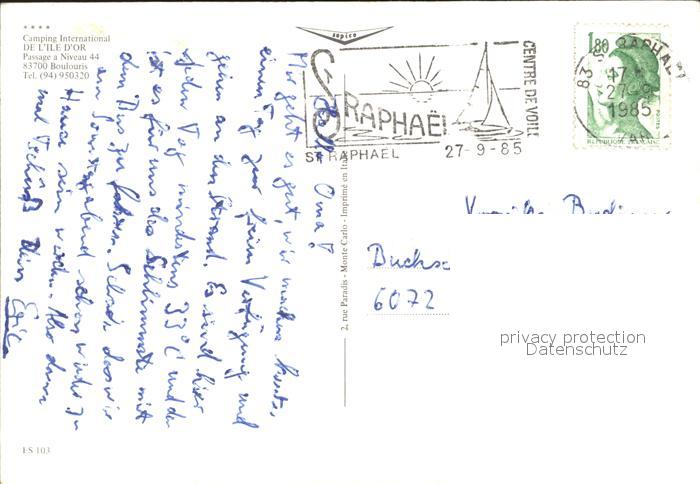 ★★★★
Camping International
DE L'ILE D'OR
Passage a Niveau 44
83700 Boulouris
Tel. (94) 950320
sopico
St RAPHAËL
CENTRE DE VOILE
ST RAPHAEL 27-9-85
83 ST RAPHAEL
17
27-9
1985
1,80
REPUBLIQUE FRANÇAISE
Hallo Oma!
Mir geht es gut, wir machen heute,
einen Tag zur freien Verfügung und
gehen an den Strand. Es sind hier
jeden Tag mindestens 33°C und da
ist es für uns das Schlimmste mit
dem Bus zu fahren. Schade, dass wir
am Sonntagabend schon wieder zu
Hause sein werden. Also dann
mal Tschüß Dein
2, rue Paradis - Monte Carlo - Imprimé en
Buchsc
6072
privacy protection
Datenschutz
ES 103